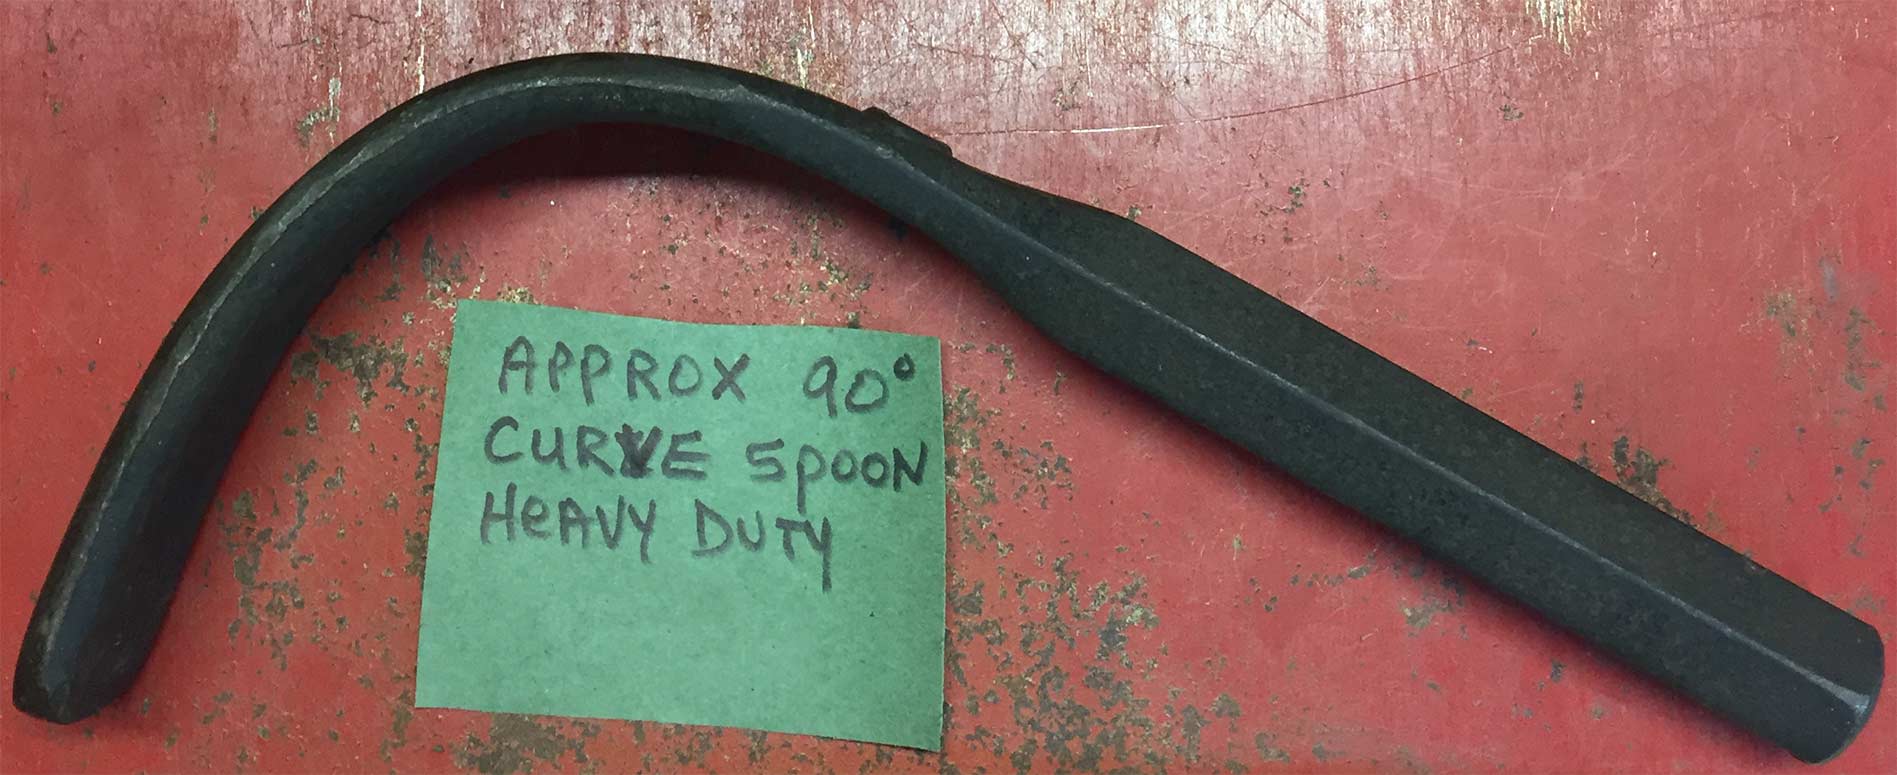 APPROX 90°
CURVE SPOON
HEAVY DUTY